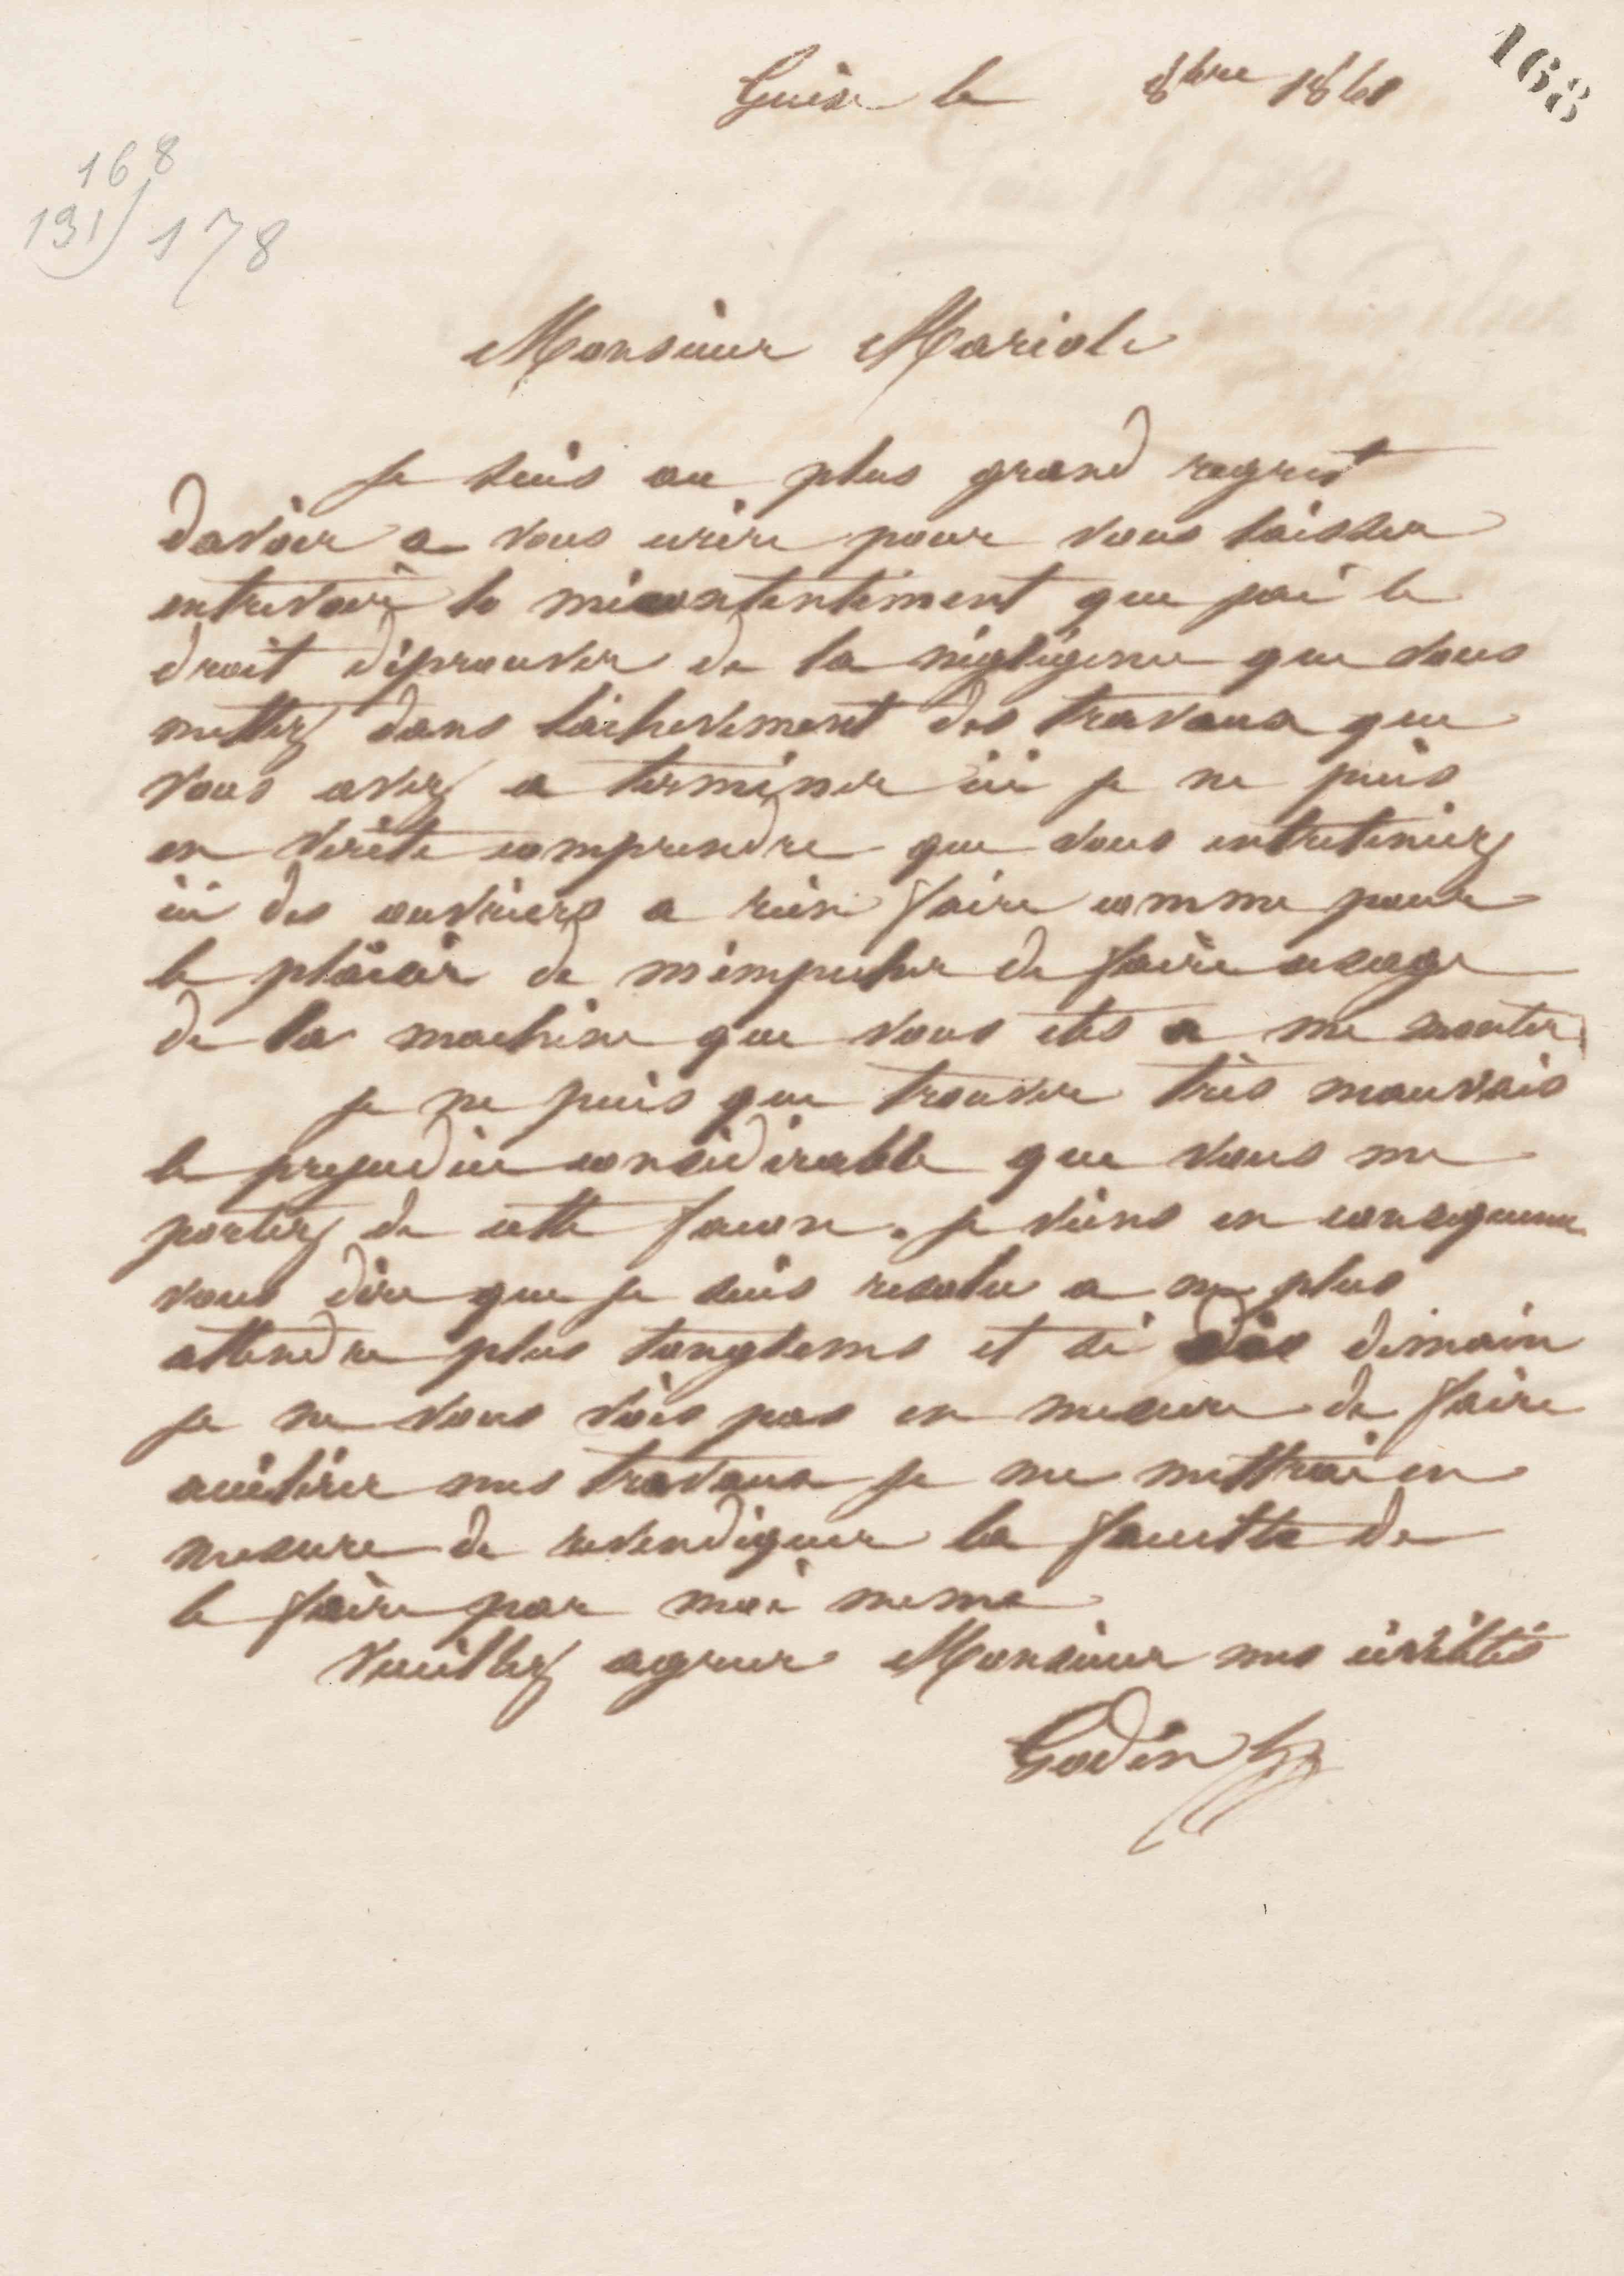 168
Guise le 8bre 1860
168
191) 178
Monsieur Mariole
je suis au plus grand regret
davoir a vous ecrire pour vous laisser
entrevoir le mécontentement que jai le
droit déprouver de la négligence que vous
mettez dans lachevement des travaux que
vous avez a terminer ici je ne puis
en vérité comprendre que vous entreteniez
ici des ouvriers a rien faire comme pour
le plaisir de mempecher de faire usage
de la machine que vous etes a me monter
je ne puis que trouver très mauvais
le prejudice considérable que vous me
portez de cette facon. je viens en consequence
vous dire que je suis resolu a ne plus
attendre plus longtems et si dès demain
je ne vous vois pas en mesure de faire
accélérer mes travaux je me mettrai en
mesure de revendiquer la faculté de
le faire par moi meme
Veuillez agreer Monsieur mes civilités
Godin